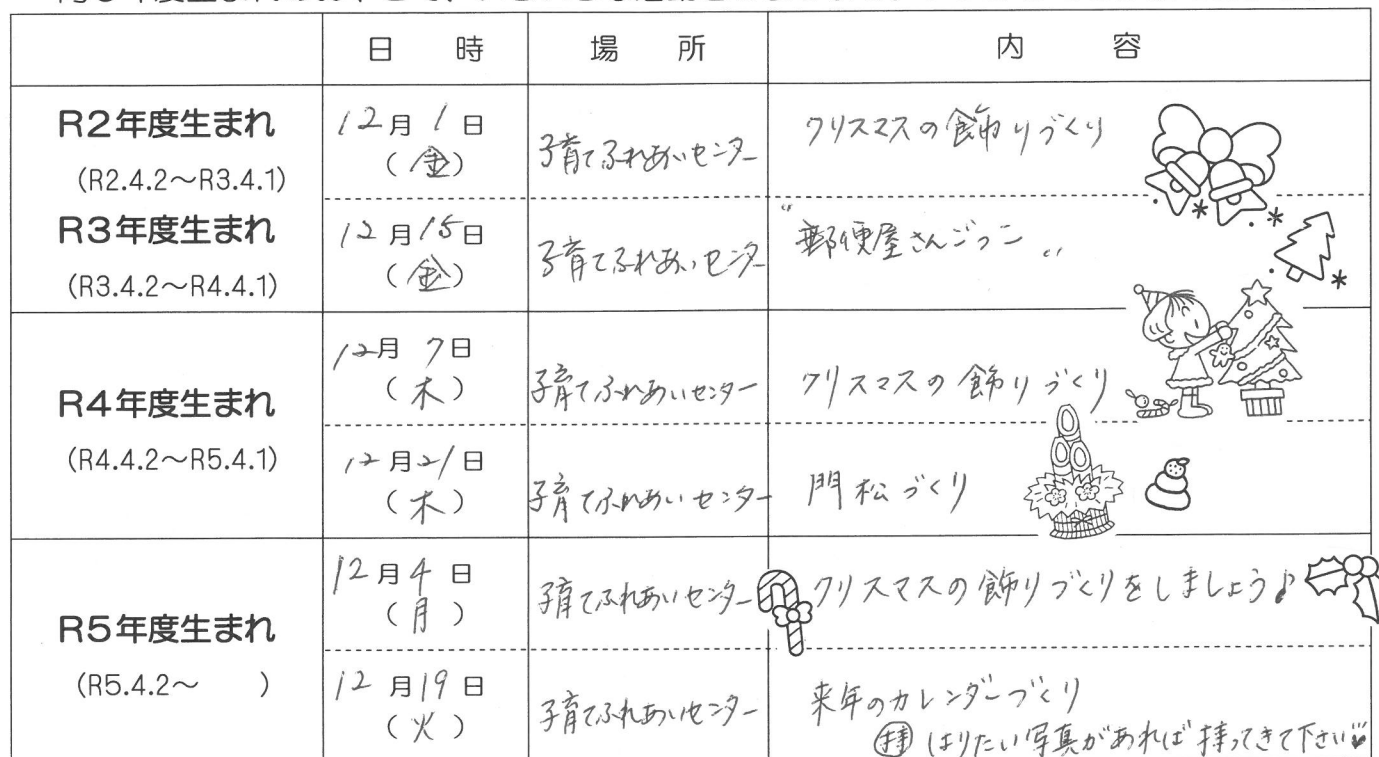 日時 場所 内容
R2年度生まれ
(R2.4.2～R3.4.1)
12月1日
(金)
子育てふれあいセンター
クリスマスの飾りづくり
R3年度生まれ
(R3.4.2～R4.4.1)
12月15日
(金)
子育てふれあいセンター
"郵便屋さんごっこ"
R4年度生まれ
(R4.4.2～R5.4.1)
12月7日
(木)
子育てふれあいセンター
クリスマスの飾りづくり
12月21日
(木)
子育てふれあいセンター
門松づくり
R5年度生まれ
(R5.4.2～ )
12月4日
(月)
子育てふれあいセンター
クリスマスの飾りづくりをしましょう♪
12月19日
(火)
子育てふれあいセンター
来年のカレンダーづくり
㊕はりたい写真があれば持ってきて下さい♥